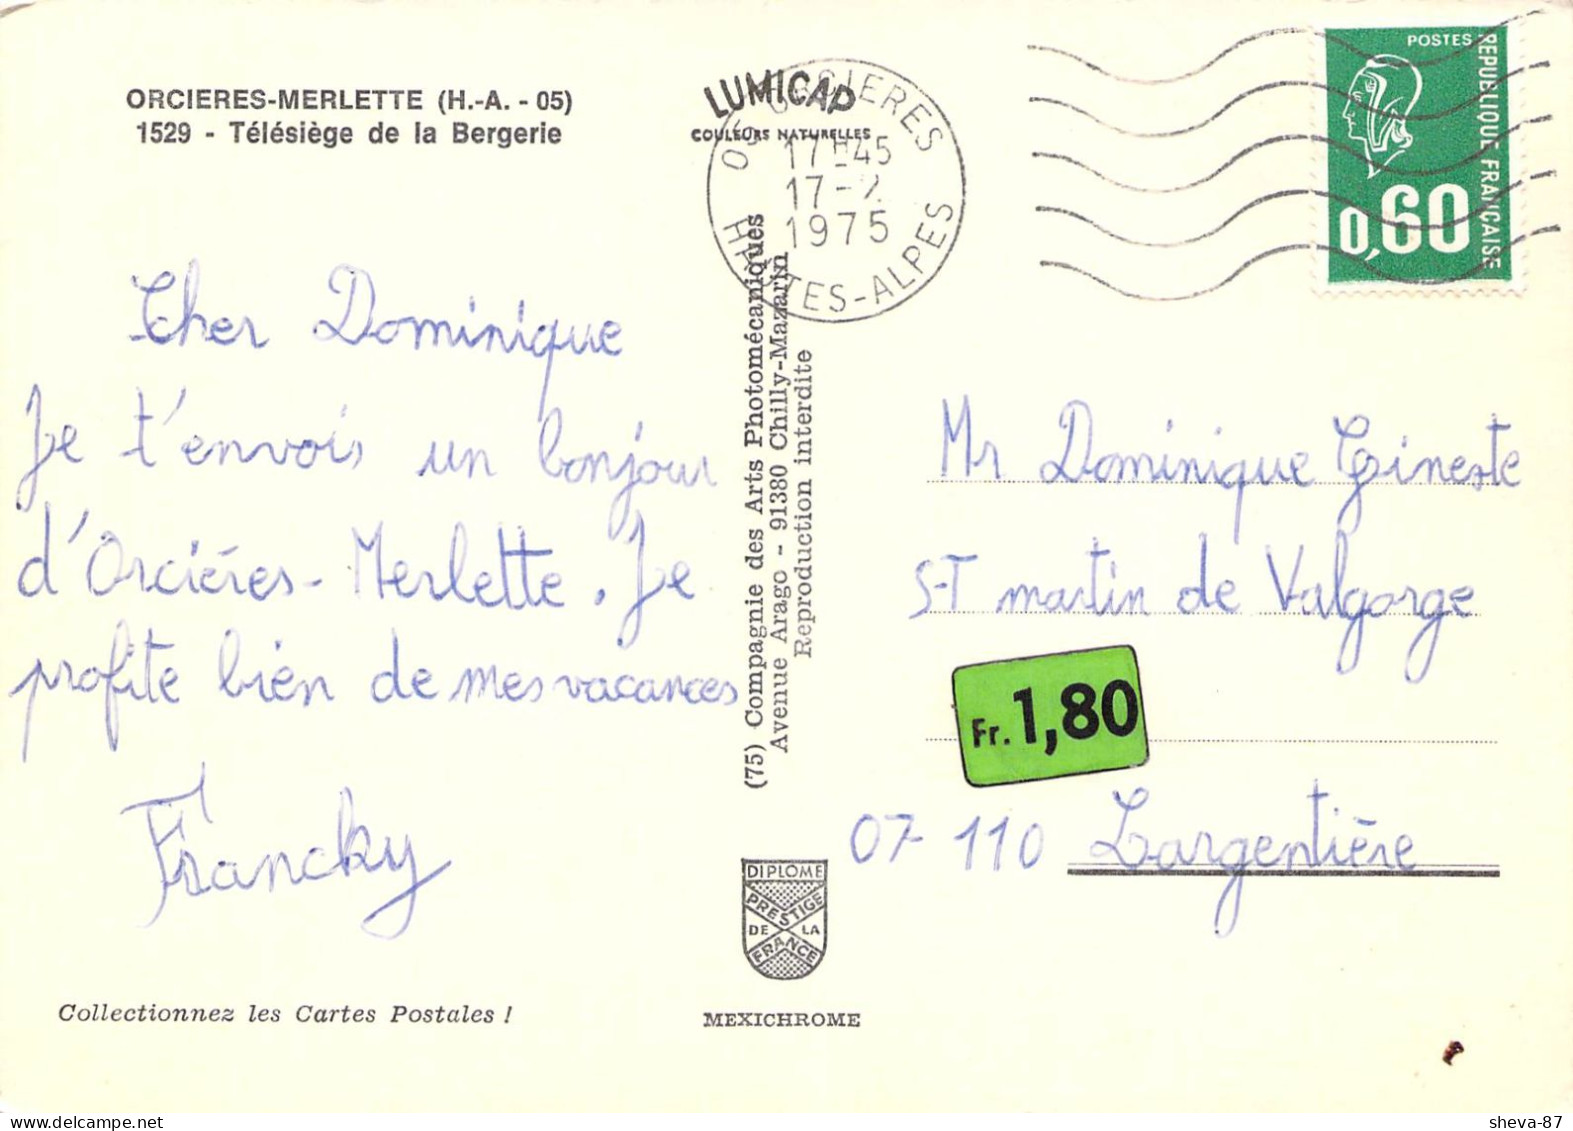 ORCIERES-MERLETTE (H.-A. - 05)
1529 - Télésiège de la Bergerie
LUMICAP
COULEURS NATURELLES
05 ORCIERES
17H45
17-2
1975
HAUTES-ALPES
POSTES
REPUBLIQUE FRANCAISE
0,60
Cher Dominique
Je t'envois un bonjour
d'Orciéres-Merlette. Je
profite bien de mes vacances
Francky
(75) Compagnie des Arts Photomécaniques
Avenue Arago - 91380 Chilly-Mazarin
Reproduction interdite
Mr Dominique Gineste
S-T martin de Valgorge
Fr. 1,80
07-110 Largentière
DIPLOME
PRESTIGE
DE LA
FRANCE
Collectionnez les Cartes Postales !
MEXICHROME
sheva-87